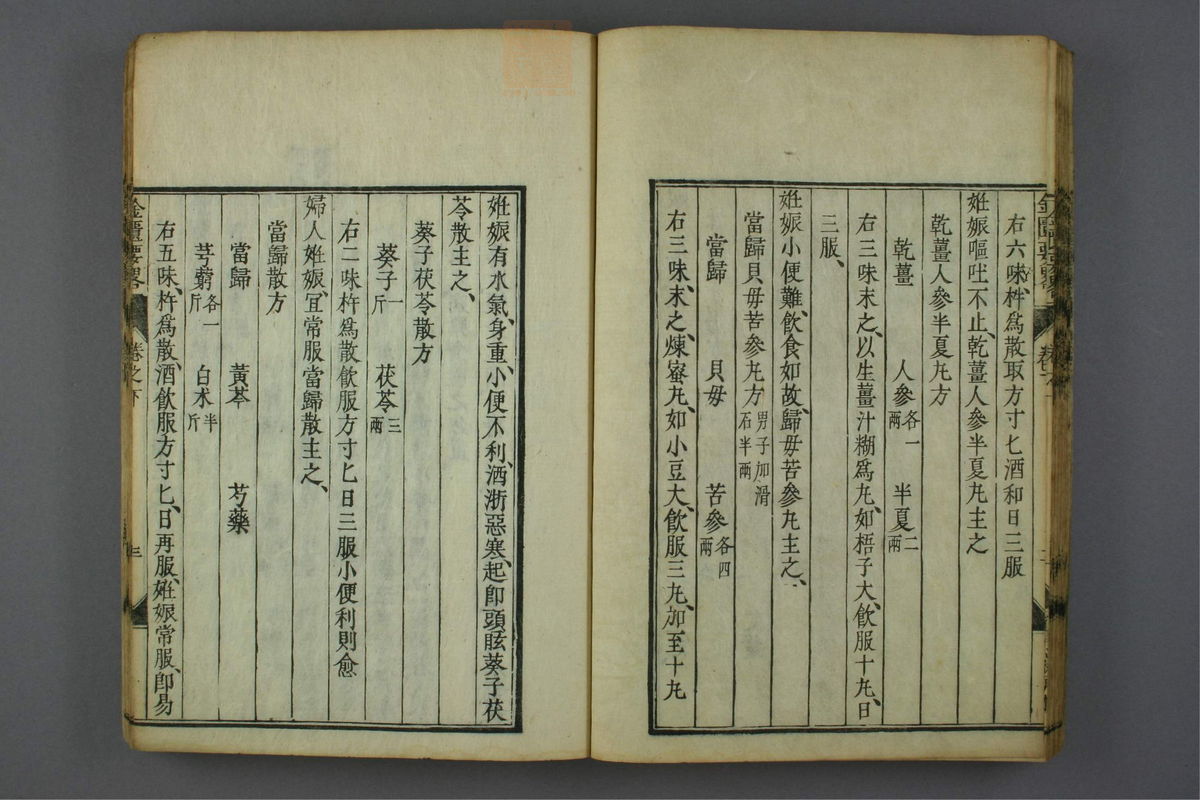 右六味、杵爲散取方寸匕酒和日三服
姙娠嘔吐不止、乾薑人參半夏丸主之
乾薑人參半夏丸方
乾薑　人參各一兩　半夏二兩
右三味末之、以生薑汁糊爲丸、如梧子大、飮服十丸、日
三服、
姙娠小便難、飮食如故、歸毋苦參丸主之、
當歸貝毋苦參丸方男子加滑石半兩
當歸　貝毋　苦參各四兩
右三味、末之、煉蜜丸、如小豆大、飮服三丸、加至十丸
姙娠有水氣、身重、小便不利、洒淅惡寒、起卽頭眩、葵子茯
苓散主之、
葵子茯苓散方
葵子一斤　茯苓三兩
右二味杵爲散飮服方寸匕日三服小便利則愈
婦人姙娠、宜常服當歸散主之、
當歸散方
當歸　黃芩　芍藥
芎藭各一斤　白朮半斤
右五味、杵爲散、酒飮服方寸匕、日再服、姙娠常服、卽易
金匱要畧
卷之下
三